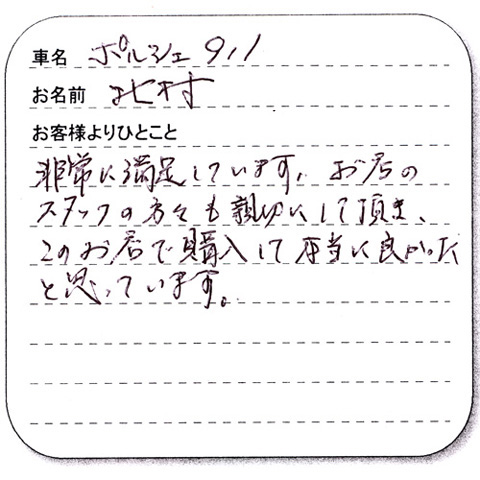 車名 ポルシェ911
お名前 北村
お客様よりひとこと
非常に満足しています。お店の
スタッフの方々も親切にして頂き、
このお店で購入して本当に良かった
と思っています。